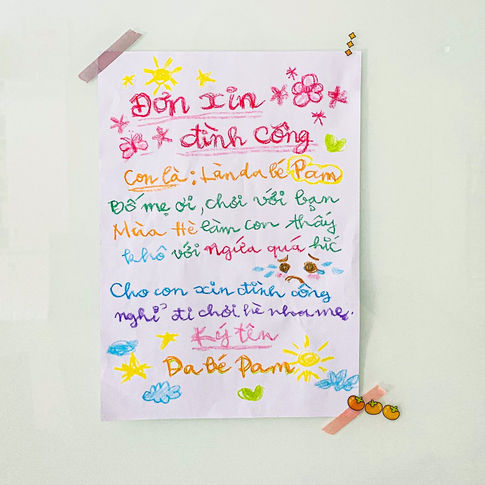 Đơn xin
đình công
Con là: Làn da bé Pam
Bố mẹ ơi, chơi với bạn
Mùa Hè làm con thấy
khô với ngứa quá híc
Cho con xin đình công
nghỉ đi chơi hè nha mẹ.
Ký tên
Da Bé Pam